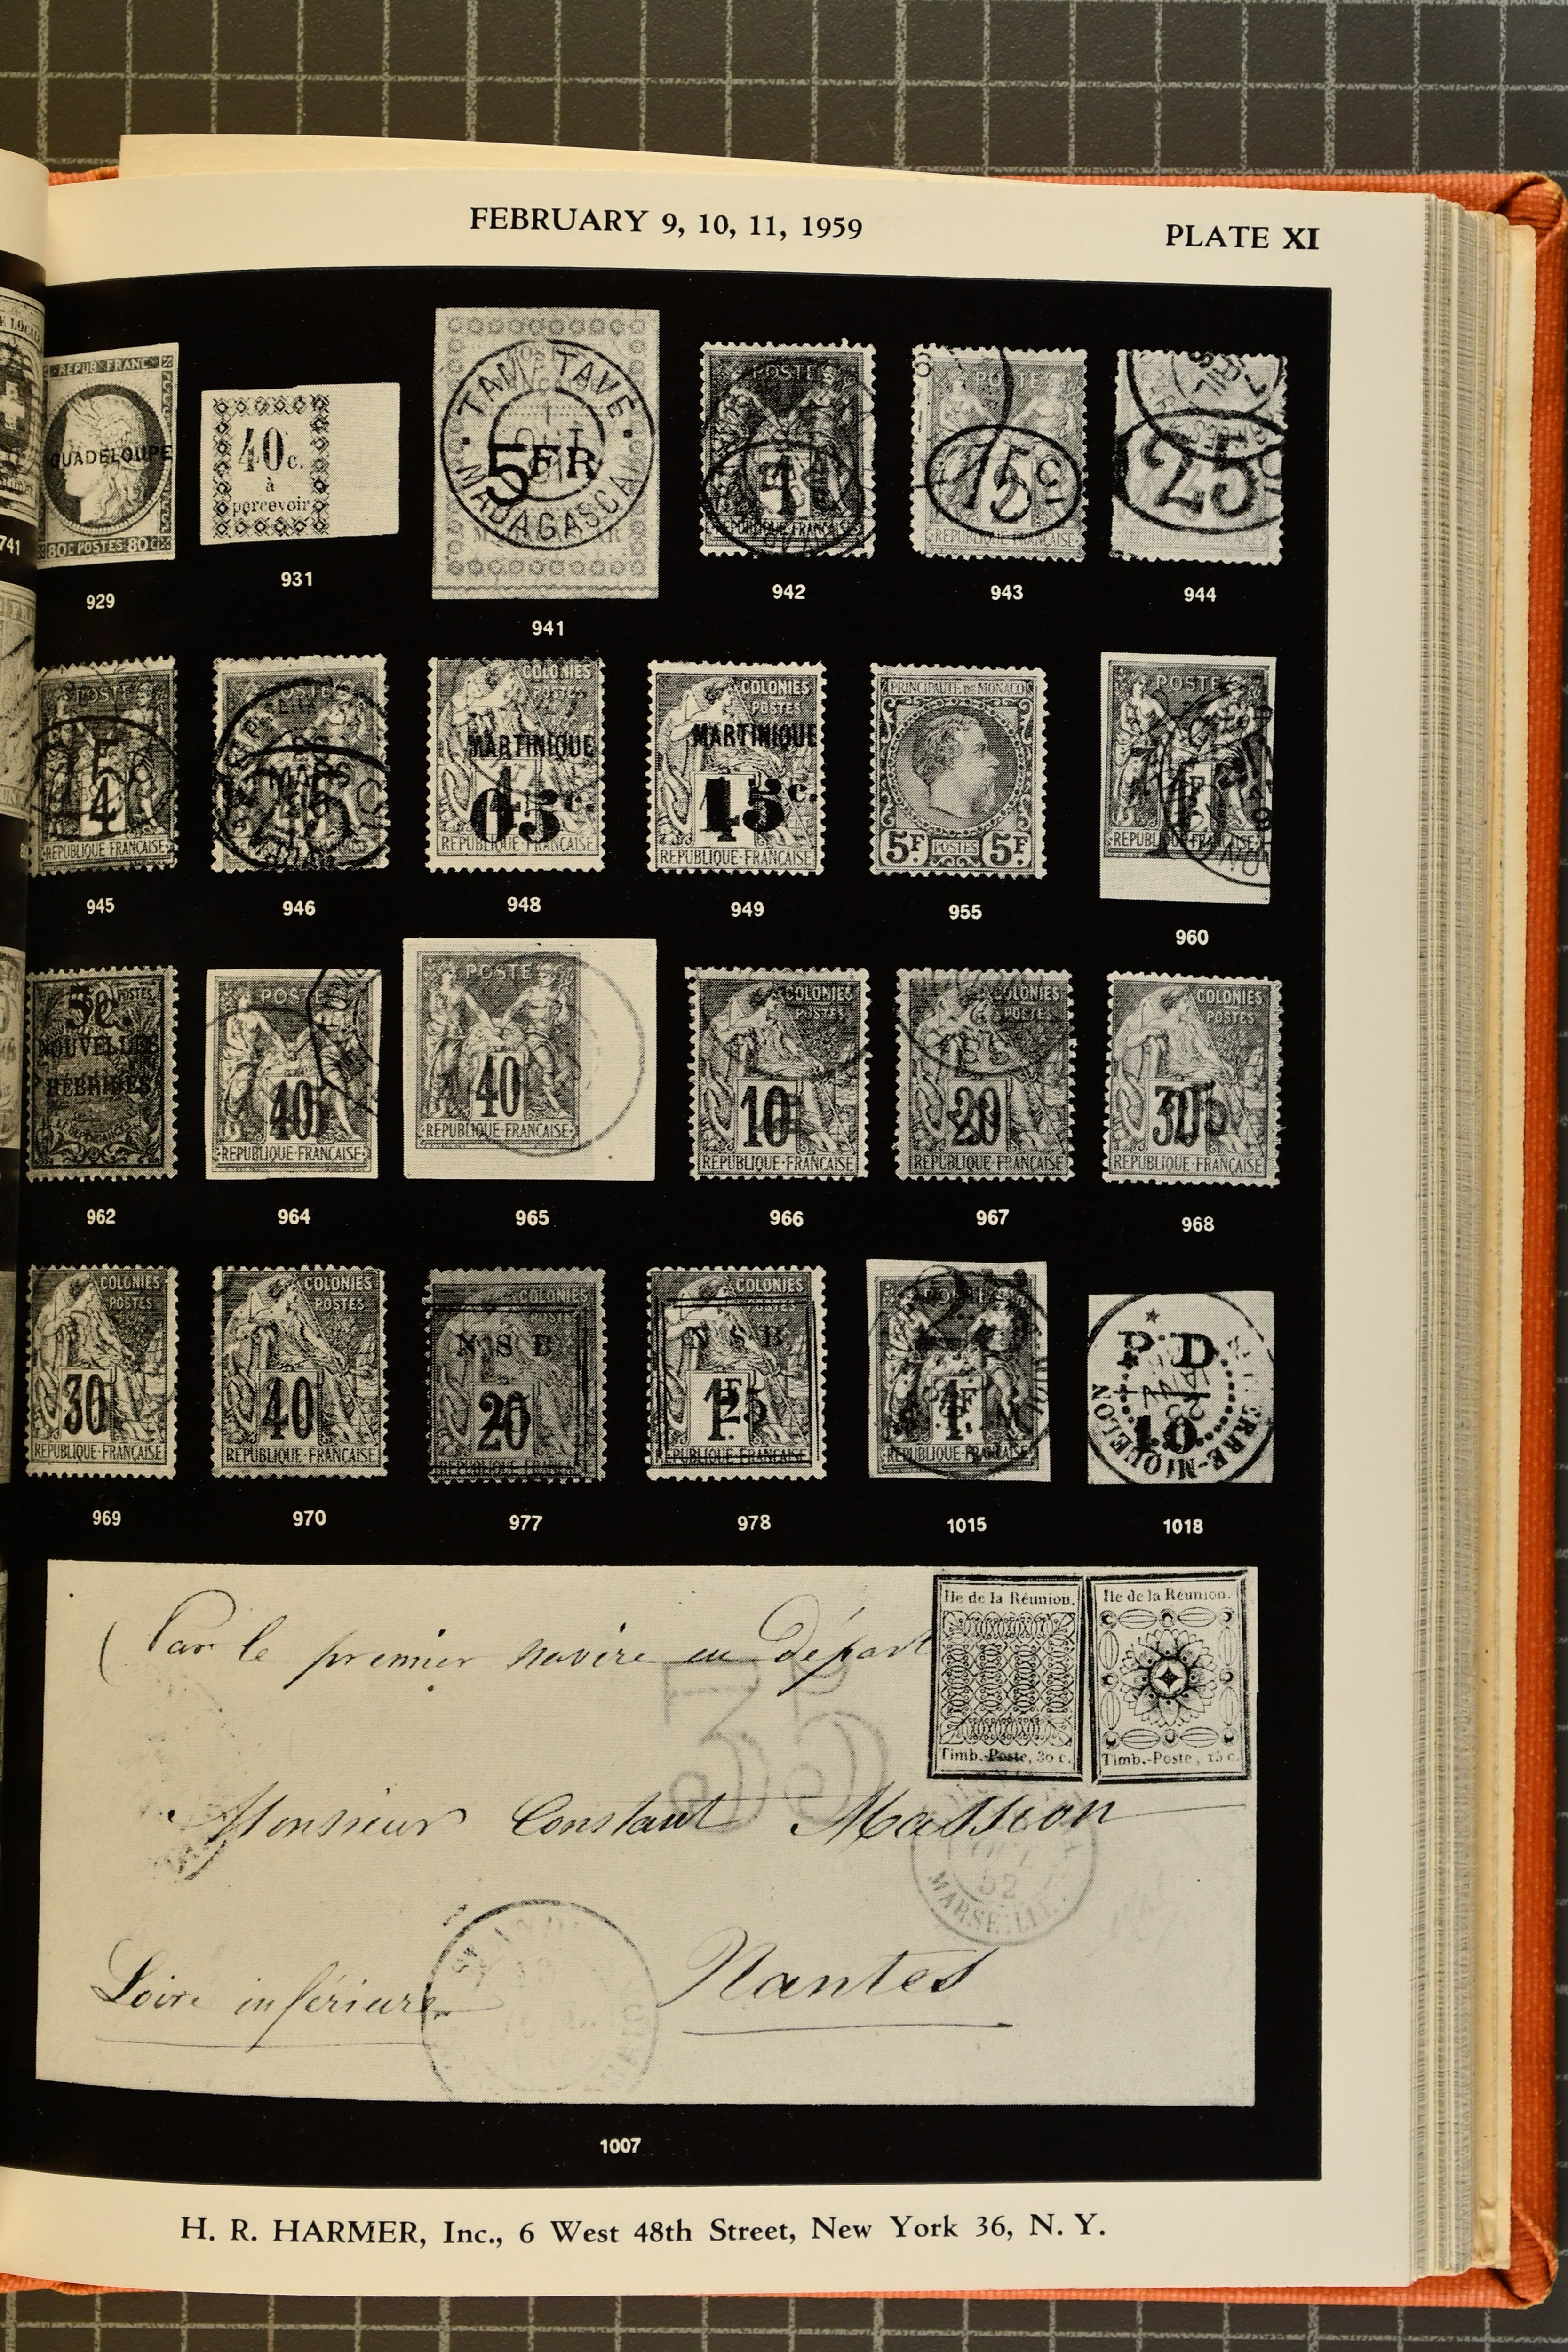 FEBRUARY 9, 10, 11, 1959
PLATE XI
REPUB FRANC
GUADELOUPE
80C POSTES 80C
929
40 c.
à
percevoir
931
TAMATAVE
5FR
MADAGASCAR
941
POSTES
1
REPUBLIQUE FRANÇAISE
942
POSTE
15
REPUBLIQUE FRANÇAISE
943
25
944
741
POSTES
15
REPUBLIQUE FRANÇAISE
945
MARS
15
946
COLONIES
POSTES
MARTINIQUE
05c.
REPUBLIQUE FRANÇAISE
948
COLONIES
POSTES
MARTINIQUE
15c.
REPUBLIQUE FRANÇAISE
949
PRINCIPAUTÉ DE MONACO
5F POSTES 5F
955
POSTE
REPUBLIQUE FRANÇAISE
960
5c.
POSTES
NOUVELLES
HÉBRIDES
962
POSTE
40
REPUBLIQUE FRANÇAISE
964
POSTE
40
REPUBLIQUE FRANÇAISE
965
COLONIES
POSTES
10
REPUBLIQUE FRANÇAISE
966
COLONIES
POSTES
20
REPUBLIQUE FRANÇAISE
967
COLONIES
POSTES
30
REPUBLIQUE FRANÇAISE
968
COLONIES
POSTES
30
REPUBLIQUE FRANÇAISE
969
COLONIES
POSTES
40
REPUBLIQUE FRANÇAISE
970
COLONIES
N S B
20
977
COLONIES
POSTES
N S B
25
REPUBLIQUE FRANÇAISE
978
1F
1015
P D
10
ERRE-MIQUELON
1018
Par le premier navire en départ
Ile de la Réunion.
Timb.-Poste, 30 c.
Ile de la Réunion.
Timb.-Poste, 15 c.
35
Monsieur Constant Massion
52
MARSEILLE
Loire inférieure
Nantes
1007
H. R. HARMER, Inc., 6 West 48th Street, New York 36, N. Y.